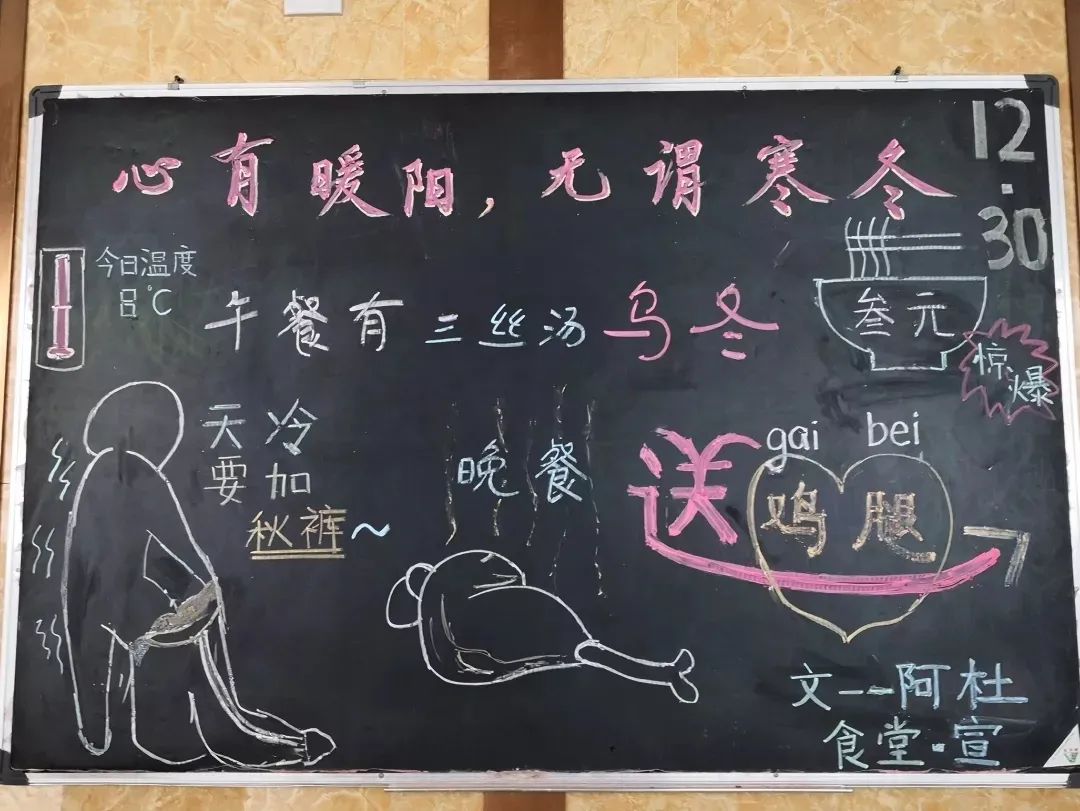 心有暖阳，无谓寒冬
12.30
今日温度
8℃
午餐有三丝汤乌冬
叁元
惊爆
天冷
要加
秋裤～
晚餐
gai bei
送鸡腿了
文——阿杜
食堂·宣